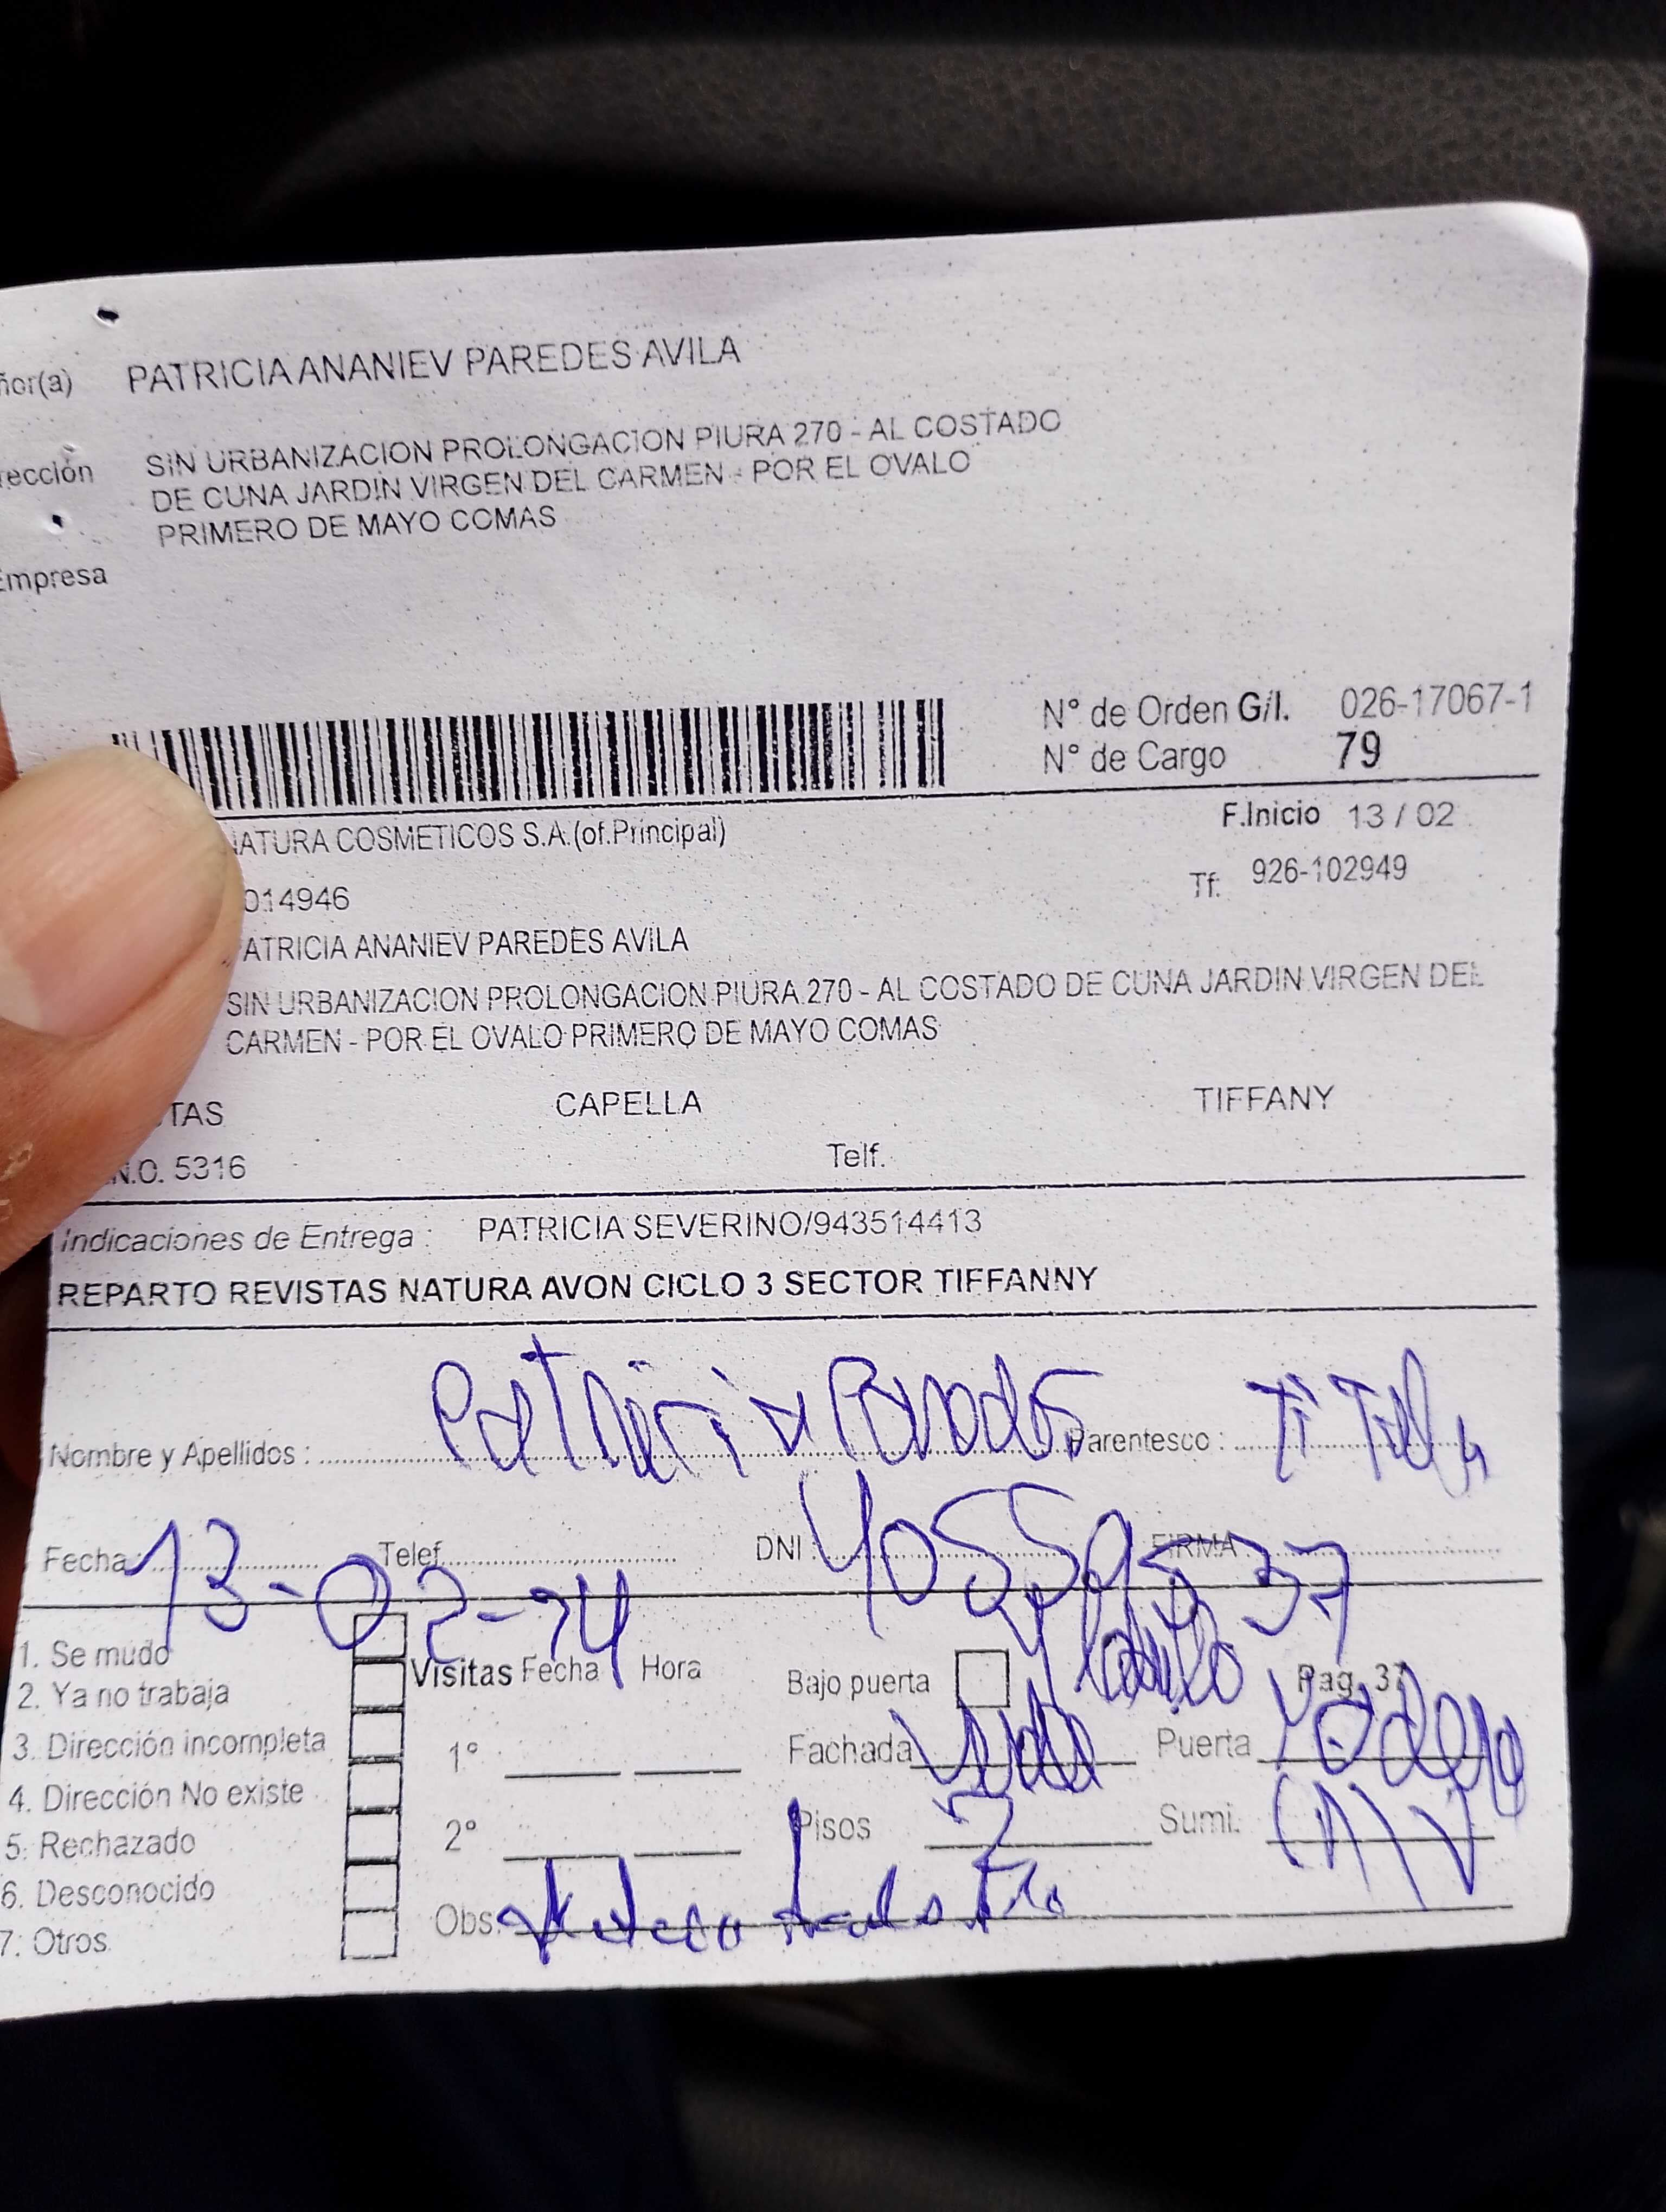 ñor(a) PATRICIA ANANIEV PAREDES AVILA
rección SIN URBANIZACION PROLONGACION PIURA 270 - AL COSTADO
DE CUNA JARDIN VIRGEN DEL CARMEN - POR EL OVALO
PRIMERO DE MAYO COMAS
Empresa
N° de Orden G/I. 026-17067-1
N° de Cargo 79
NATURA COSMETICOS S.A.(of.Principal) F.Inicio 13 / 02
014946 Tf: 926-102949
ATRICIA ANANIEV PAREDES AVILA
SIN URBANIZACION PROLONGACION PIURA 270 - AL COSTADO DE CUNA JARDIN VIRGEN DEL
CARMEN - POR EL OVALO PRIMERO DE MAYO COMAS
TAS CAPELLA TIFFANY
N.O. 5316 Telf.
Indicaciones de Entrega : PATRICIA SEVERINO/943514413
REPARTO REVISTAS NATURA AVON CICLO 3 SECTOR TIFFANNY
Nombre y Apellidos : Patricia Paredes Parentesco : Titular
Fecha: 13-02-24 Telef. DNI 40559537 FIRMA
1. Se mudo
2. Ya no trabaja Visitas Fecha Hora Bajo puerta Ladrillo Pag. 37
3. Dirección incompleta 1° Fachada Puerta
4. Dirección No existe
5. Rechazado 2° Pisos 2 Sumi.
6. Desconocido
7. Otros Obs.